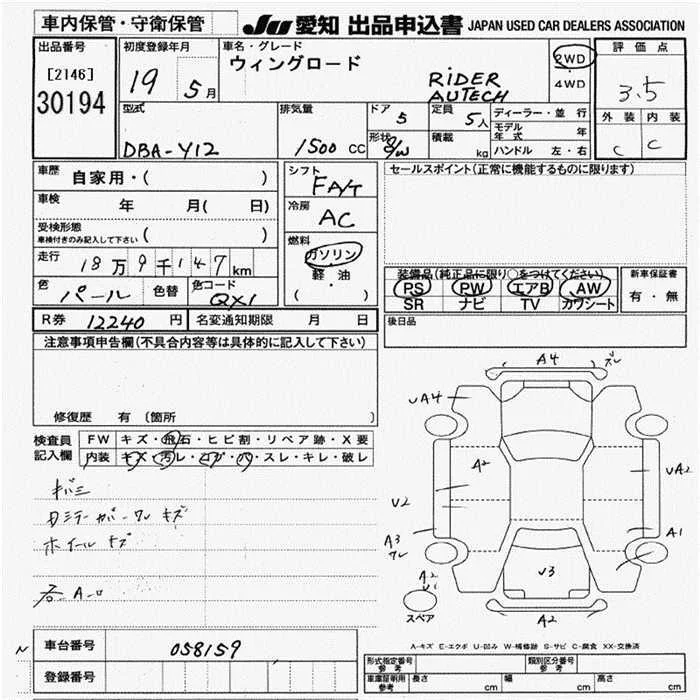 車内保管・守衛保管
JU 愛知 出品申込書 JAPAN USED CAR DEALERS ASSOCIATION
出品番号
[2146]
30194
初度登録年月
19 5月
車名・グレード
ウィングロード
RIDER
AUTECH
2WD
4WD
評価点
3.5
外装 内装
C C
型式
DBA-Y12
排気量
1500 CC
ドア
5
形状 S/W
定員
5人
積載
kg
ディーラー・並行
モデル年式 年
ハンドル 左・右
車歴 自家用・( )
車検 年 月( 日)
受検形態
車検付きのみ記入して下さい ( )
走行 18万9千147km
色 パール 色替 色コード QX1
シフト
FA/T
冷房
AC
燃料
ガソリン
軽・油
( )
セールスポイント(正常に機能するものに限ります)
装備品(純正品に限り○をつけてください)
PS PW エアB AW
SR ナビ TV カワシート
新車保証書
有・無
R券 12240 円 名変通知期限 月 日
後日品
注意事項申告欄(不具合内容等は具体的に記入して下さい)
修復歴 有 〔箇所 〕
検査員
記入欄
FW キズ・飛石・ヒビ割・リペア跡・X要
内装 キズ・汚レ・コゲ・穴・スレ・キレ・破レ
キバミ
ホイール キズ
A4
ズレ
UA4
A2
UA2
U2
A3
ワレ
A1
A2
U1
U3
スペア
A2
A-キズ E-エクボ U-凹み W-補修跡 S-サビ C-腐食 XX-交換済
N
車台番号 058159
登録番号
形式指定番号
参考
類別区分番号
参考
車庫証明用
参考
長さ cm 幅 cm 高さ cm